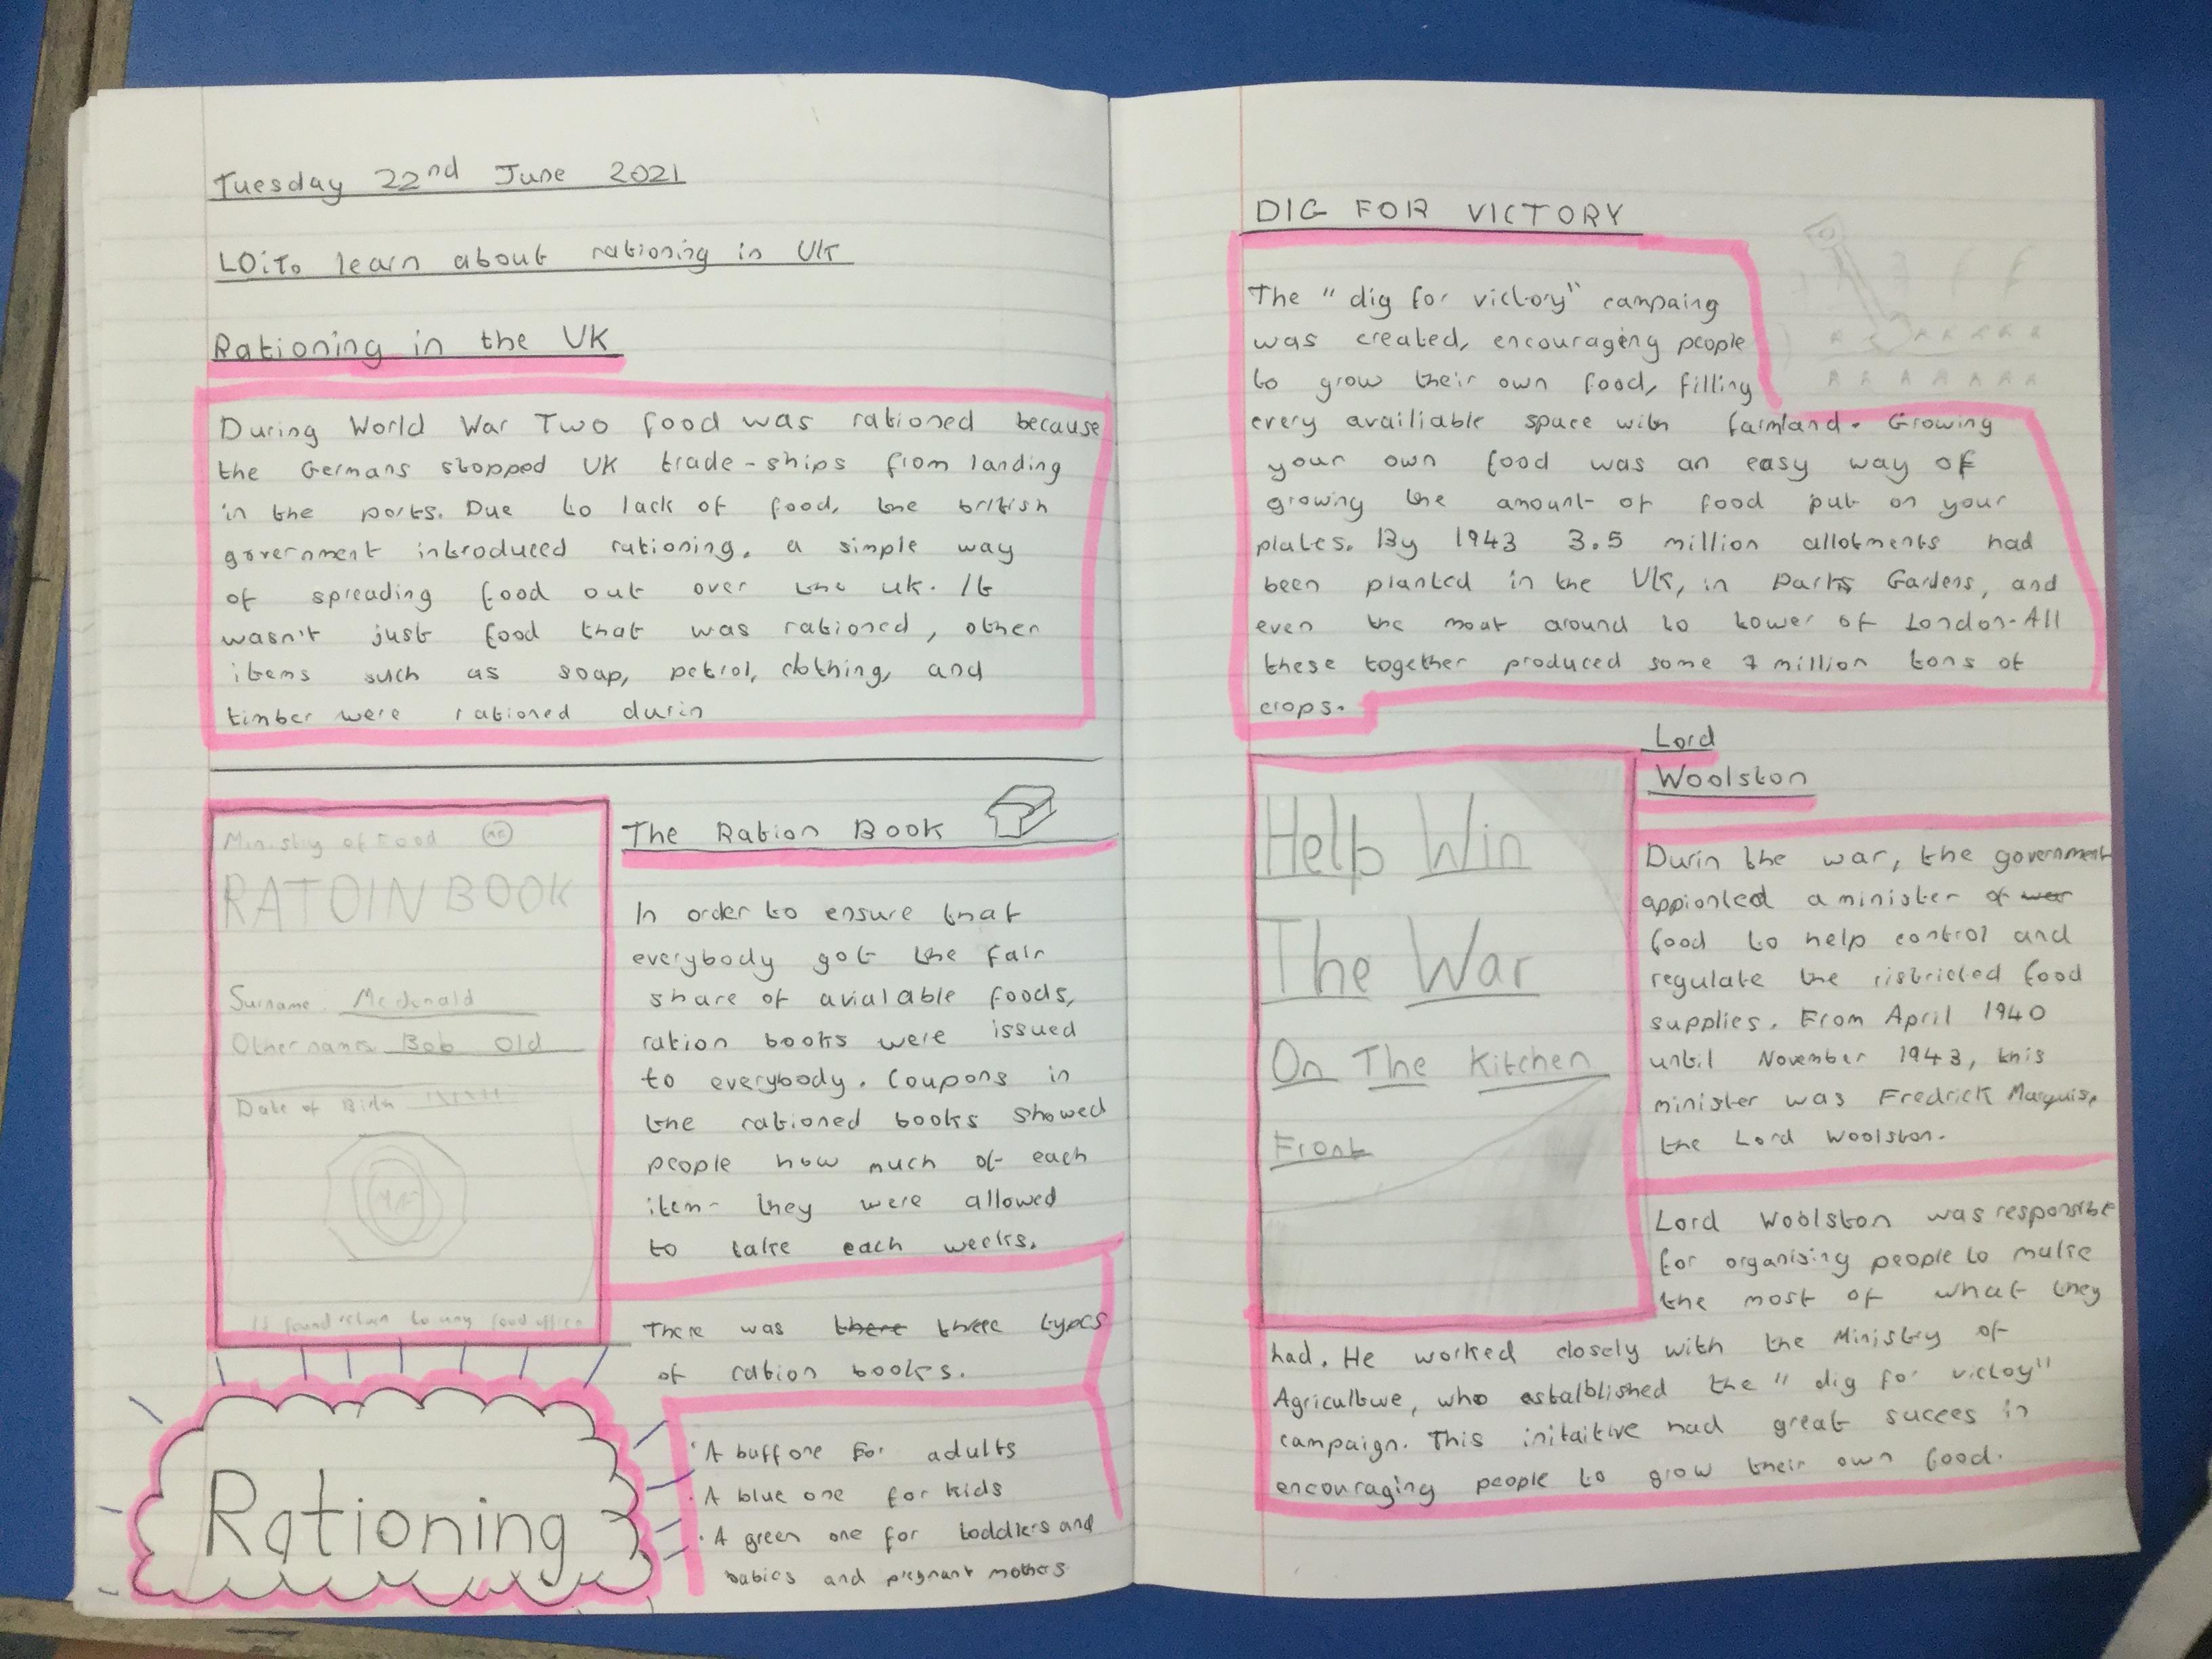 Tuesday 22nd June 2021
LO: To learn about rationing in UK
Rationing in the UK
During World War Two food was rationed because
the Germans stopped UK trade-ships from landing
in the ports. Due to lack of food, the british
government introduced rationing, a simple way
of spreading food out over the uk. It
wasn't just food that was rationed, other
items such as soap, petrol, clothing, and
timber were rationed durin
Ministry of Food
RATOIN BOOK
Surname Mcdonald
Other names Bob Old
Date of Birth
If found return to any food office
Rationing
The Ration Book
In order to ensure that
everybody got the fair
share of avialable foods,
ration books were issued
to everybody. Coupons in
the rationed books showed
people how much of each
item they were allowed
to take each weeks.
There was there three types
of ration books.
· A buff one for adults
· A blue one for kids
· A green one for toddlers and
babies and pregnant mothers
DIG FOR VICTORY
The "dig for victory" campaing
was created, encouraging people
to grow their own food, filling
every availiable space with farmland. Growing
your own food was an easy way of
growing the amount of food put on your
plates. By 1943 3.5 million allotments had
been planted in the UK, in Parks Gardens, and
even the moat around to tower of London. All
these together produced some 7 million tons of
crops.
Help Win
The War
On The Kitchen
Front
Lord
Woolston
Durin the war, the government
appionted a minister of war
food to help control and
regulate the ristricted food
supplies. From April 1940
until November 1943, this
minister was Fredrick Marquis,
the Lord Woolston.
Lord Woolston was responsible
for organising people to make
the most of what they
had. He worked closely with the Ministry of
Agriculture, who establblished the "dig for victoy"
campaign. This initaitive had great succees in
encouraging people to grow their own food.